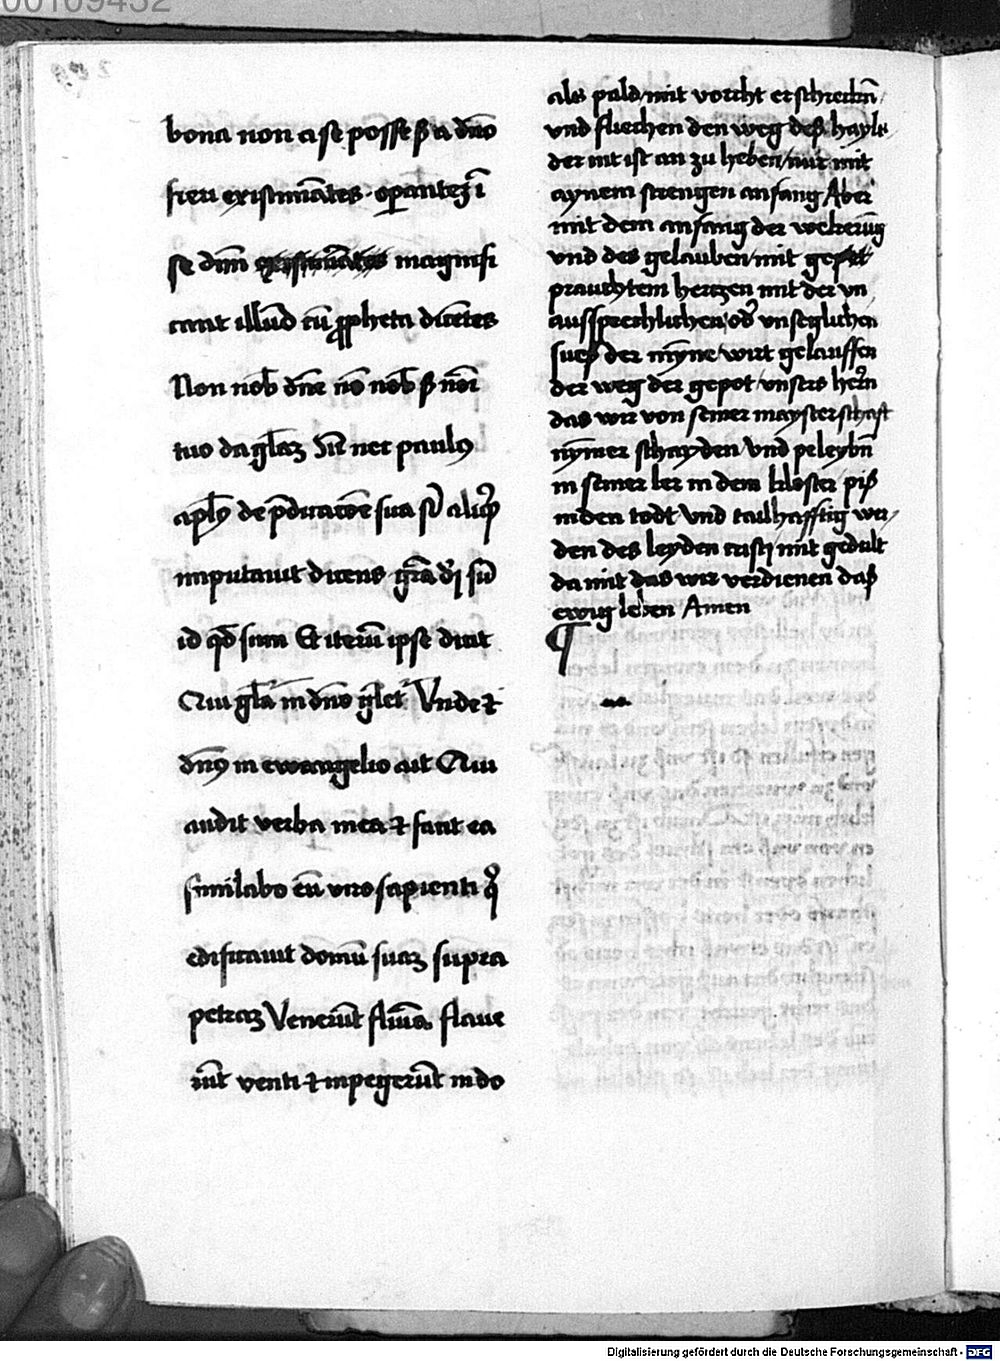 bona non a se posse s; a dn̄o
fieri existimātes. oꝑantez ī
se dnm̄ magnifi
cant illud cū ꝓpheta dicētes
Non nob̄ dn̄e nō nob̄ s; nōi
tuo da gl̄az Sic̄ nec paulꝰ
apl̄s de p̄dicacōe sua s̄ aliqͥd
imputauit dicens gr̄a dei sū
id qd̄ sum Et iterū ipse dicit
Qui gl̄at᷑ in dn̄o gl̄et᷑ Vnde ⁊
dn̄s in ewangelio ait Qui
audit verba mea ⁊ facit ea
similabo eū viro sapienti qͥ
edificauit domū suaz supra
petraz Venerūt flūīa. flaue
rūt venti ⁊ inpegerūt in do
als pald mit vorcht erschrickn̄
vnd fliechen den weg deß hayls
der nit ist an zu heben / nur mit
aynem strengen anfang Aber
mit dem anfang der wekerūg
vnd des gelauben / mit ge
praittem hertzen mit der vn
aussprechlichen / od᷑ vnseglichen
sueß der mȳne / wirt gelauffen
der weg der gepot / vnsers hern̄
das wir von seiner maysterschaft
nȳmer schayden / vnd peleybn̄
in seiner ler in dem kloster / piß
in den todt vnd tailhafftig wer
den des leyden cristi mit gedult
da mit das wir verdienen daß
ewig leben Amen
00109432
Digitalisierung gefördert durch die Deutsche Forschungsgemeinschaft - DFG